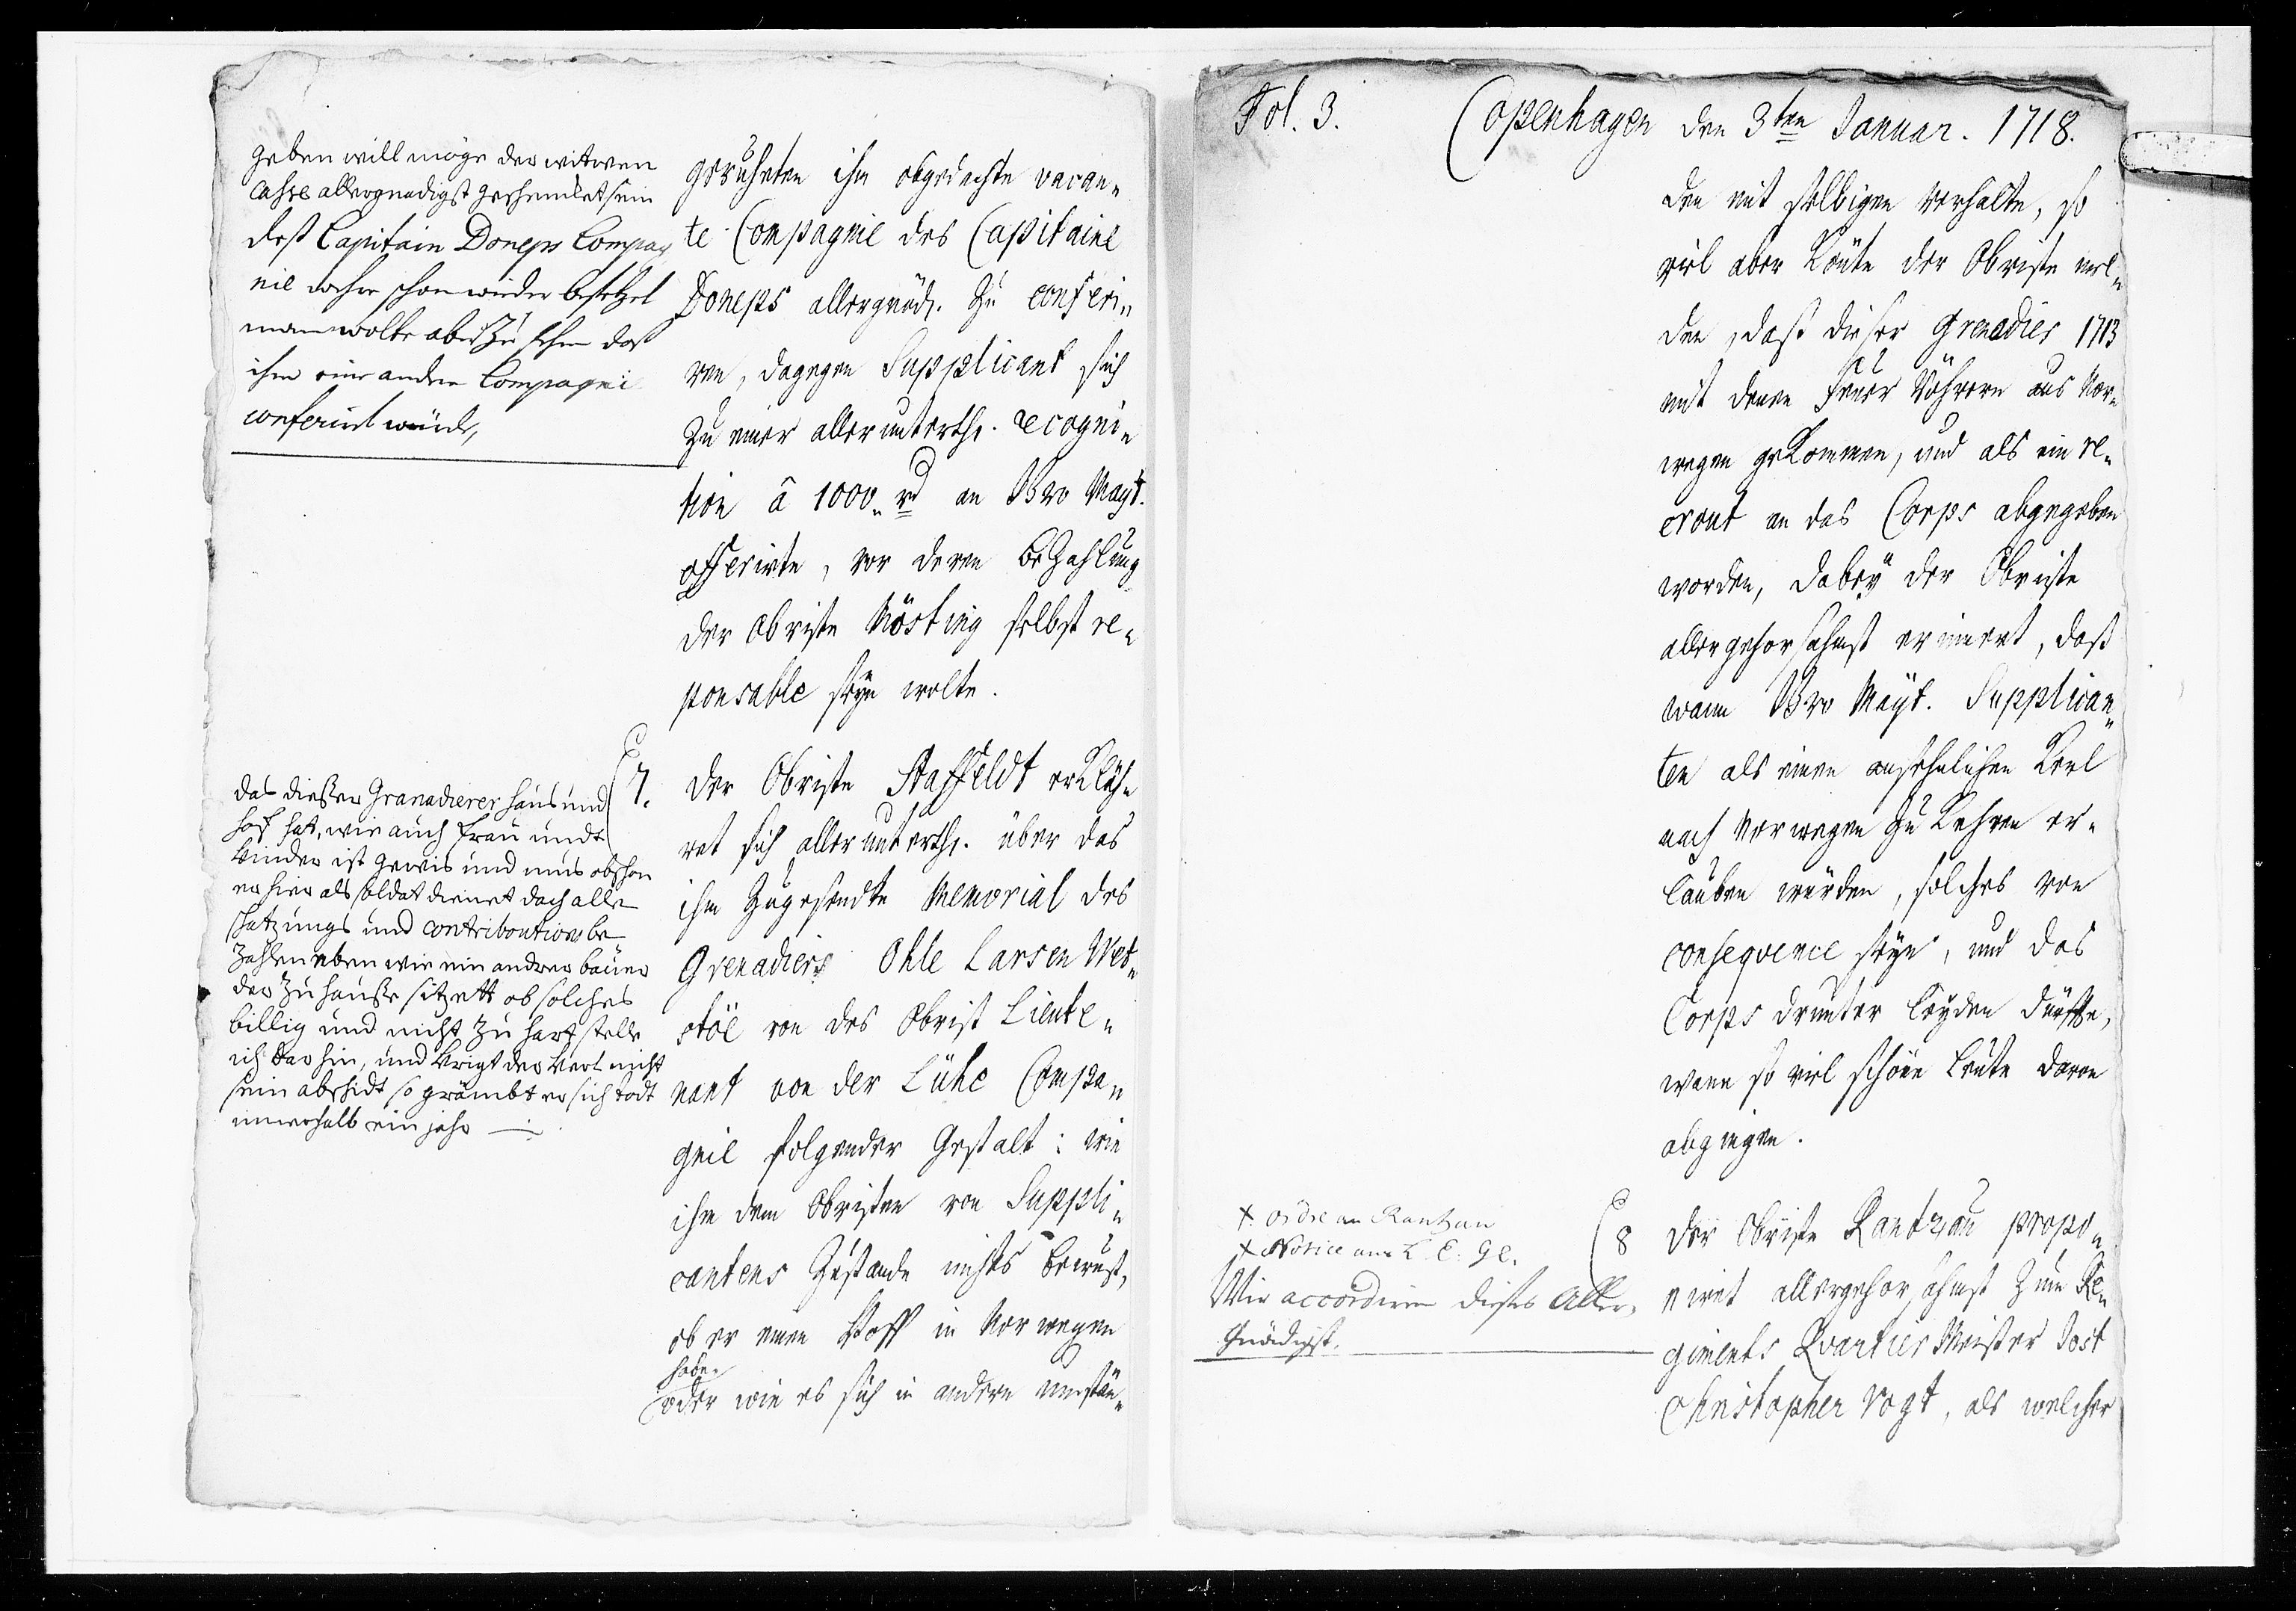 geben will möge der witwen
Casse allergnädigst geschencket sein
dess Capitain Doneps Compag
nie wehre schon wieder besetzet
man wolte aber zu sehen das
ihm eine andere Compagni
conferirt würde,
geruheten ihm obgedachte vacan„
te Compagnie des Capitaine
Doneps allergnäd. zu conferi„
ren, dagegen Supplicant sich
zu einer allerunterth. recogni„
tion â 1000 rd an Ewr Mayt.
offerirte, vor deren bezahlung
der Obriste Nösting selbst re„
ponsable seyn wolte.
das diesser Granadierer haus und
hoff hat, wie auch frau undt
kinder ist gewis und mus obschon
er hier als soldat dienet doch alle
schatzungs und contriboution be
zahlen eben wie ein andrer bauer
der zu hausse sitzett ob solches
billig und nicht zu hart stelle
ich dar hin, und krigt der kerl nicht
sein abschidt so grämbt er sich todt
innerhalb ein jahr
7. Der Obriste Staffeldt erkläh„
ret sich allerunterth. über das
ihm zugesandte Memorial des
Grenadiers Ohle Larsen Wet„
stöe von des Obrist Lieute„
nant von der Lühe Compa„
gnie folgender Gestalt: wie
ihm dem Obristen von Suppli„
cantens Zustande nichts bewust,
ob er einen Hoff in Norwegen
habe
oder wie es sich in andern umstän„
Fol. 3. Copenhagen den 3ten Januar. 1718.
den mit selbigen verhalte, so
viel aber könte der Obriste mel„
den, dass dieser Grenadier 1713
mit denen Feuer Röhrern aus Nor„
wegen gekommen, und als ein re„
crout an das Corps abgegeben
worden, dabey der Obriste
allergehorsahmst erinnert, dass
wann Ewr Mayt. Supplican„
ten als einen ansehnlichen Kerl
nach Norwegen zu kehren er„
lauben würden, solches von
conseqvence seyn, und das
Corps drunter leyden dürffte,
wann so viel schöne Leute davon
abgingen.
+ Ordre an Rantzau
+ Notice ans L. C. Gl.
Wir accordiren dieses Aller„
gnädigst.
8 Der Obriste Rantzau propo„
niret allergehorsahmst zum Re„
giments Qvartier Meister Jost
Christopher Vogt, als welcher